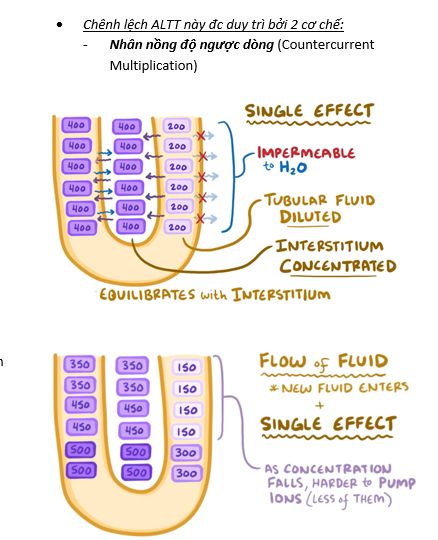 • Chênh lệch ALTT này đc duy trì bởi 2 cơ chế:
- Nhân nồng độ ngược dòng (Countercurrent
Multiplication)
SINGLE EFFECT
400 400 200
400 400 200
400 400 200
400 400 200
400 400 200
400 400 200
IMPERMEABLE
to H₂O
TUBULAR FLUID
DILUTED
INTERSTITIUM
CONCENTRATED
EQUILIBRATES with INTERSTITIUM
350 350 150
350 350 150
450 450 150
450 450 150
500 500 300
500 500 300
FLOW of FLUID
* NEW FLUID ENTERS
+
SINGLE EFFECT
AS CONCENTRATION
FALLS, HARDER to PUMP
IONS (LESS of THEM)